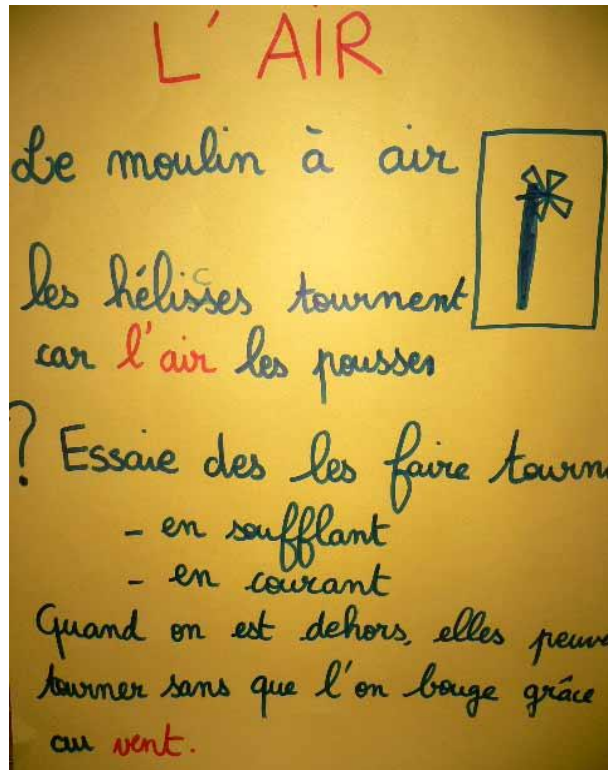 L'AIR
Le moulin à air
les hélices tournent
car l'air les pousses
? Essaie des les faire tourn
- en soufflant
- en courant
Quand on est dehors, elles peuve
tourner sans que l'on bouge grâce
au vent.